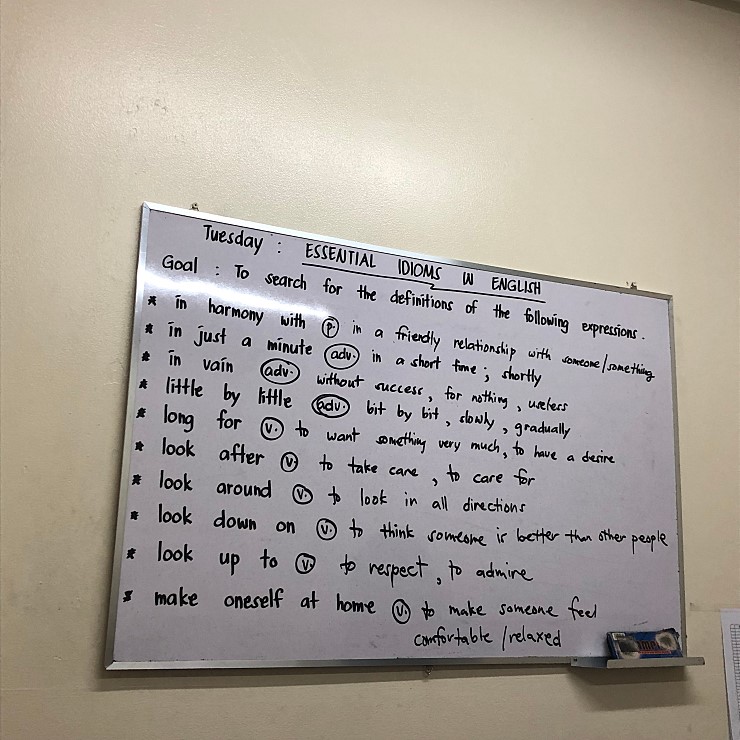 Tuesday : ESSENTIAL IDIOMS IN ENGLISH
Goal : To search for the definitions of the following expressions.
* in harmony with (p.) in a friendly relationship with someone/something
* in just a minute (adv.) in a short time ; shortly
* in vain (adv.) without success, for nothing, useless
* little by little (adv.) bit by bit, slowly, gradually
* long for (v.) to want something very much, to have a desire
* look after (v.) to take care, to care for
* look around (v.) to look in all directions
* look down on (v.) to think someone is better than other people
* look up to (v.) to respect, to admire
* make oneself at home (v.) to make someone feel
comfortable /relaxed